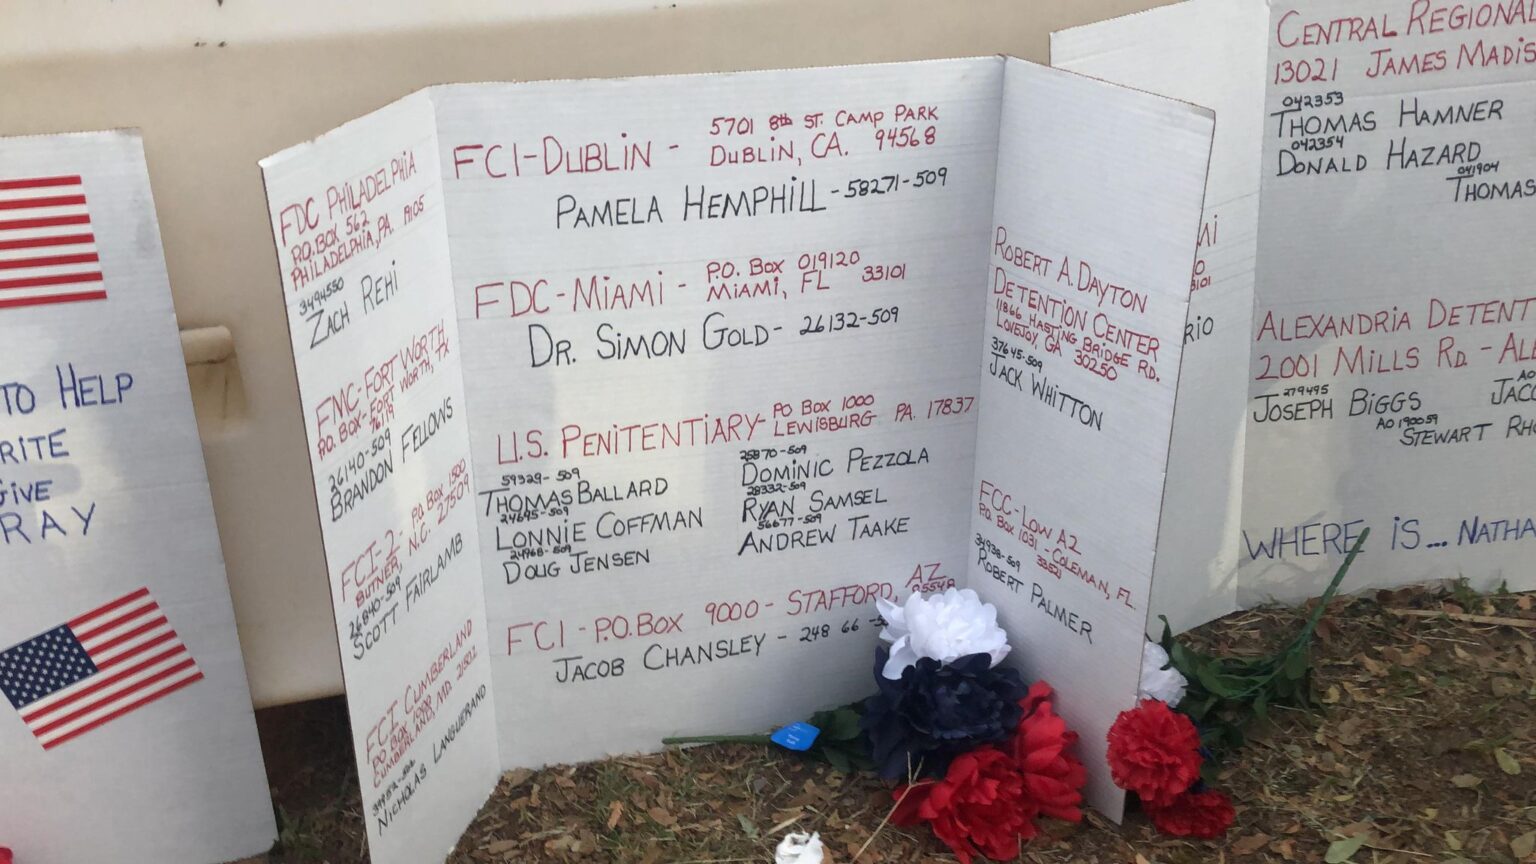 TO HELP
RITE
GIVE
RAY
FDC PHILADELPHIA
P.O. BOX 562
PHILADELPHIA, PA. 19105
3494550
ZACH REHI
FMC-FORT WORTH
P.O. BOX- FORT WORTH, TX
76119
26140-509
BRANDON FELLOWS
FCI-2- PO BOX 1500
BUTNER, N.C. 27509
26840-509
SCOTT FAIRLAMB
FCI CUMBERLAND
PO BOX 1000
CUMBERLAND, MD. 21502
NICHOLAS LANGUERAND
FCI-DUBLIN - 5701 8th ST. CAMP PARK
DUBLIN, CA. 94568
PAMELA HEMPHILL-58271-509
FDC-MIAMI - P.O. BOX 019120
MIAMI, FL 33101
DR. SIMON GOLD- 26132-509
U.S. PENITENTIARY- PO BOX 1000
LEWISBURG PA. 17837
59329-509
THOMAS BALLARD
24695-509
LONNIE COFFMAN
24968-509
DOUG JENSEN
25870-509
DOMINIC PEZZOLA
28332-509
RYAN SAMSEL
56677-509
ANDREW TAAKE
FCI-P.O. BOX 9000-STAFFORD, AZ
85548
JACOB CHANSLEY - 248 66
ROBERT A. DAYTON
DETENTION CENTER
11866 HASTING BRIDGE RD.
LOVEJOY, GA 30250
37645-509
JACK WHITTON
FCC-LOW AZ
P.O. BOX 1031-COLEMAN, FL.
33521
34938-509
ROBERT PALMER
MI
0
3101
RIO
CENTRAL REGIONAL
13021 JAMES MADIS
042353
THOMAS HAMNER
042354
DONALD HAZARD
041904
THOMAS
ALEXANDRIA DETENT
2001 MILLS RD - ALE
279495
JOSEPH BIGGS
AO
JACO
AO190059
STEWART RHO
WHERE IS... NATHA